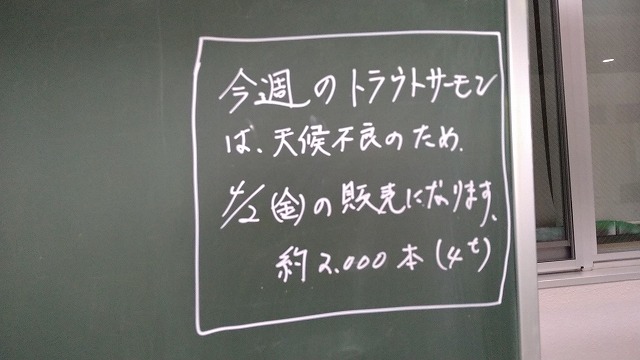 今週のトラウトサーモン
は、天候不良のため、
4/2(金)の販売になります。
約2,000本(4t)